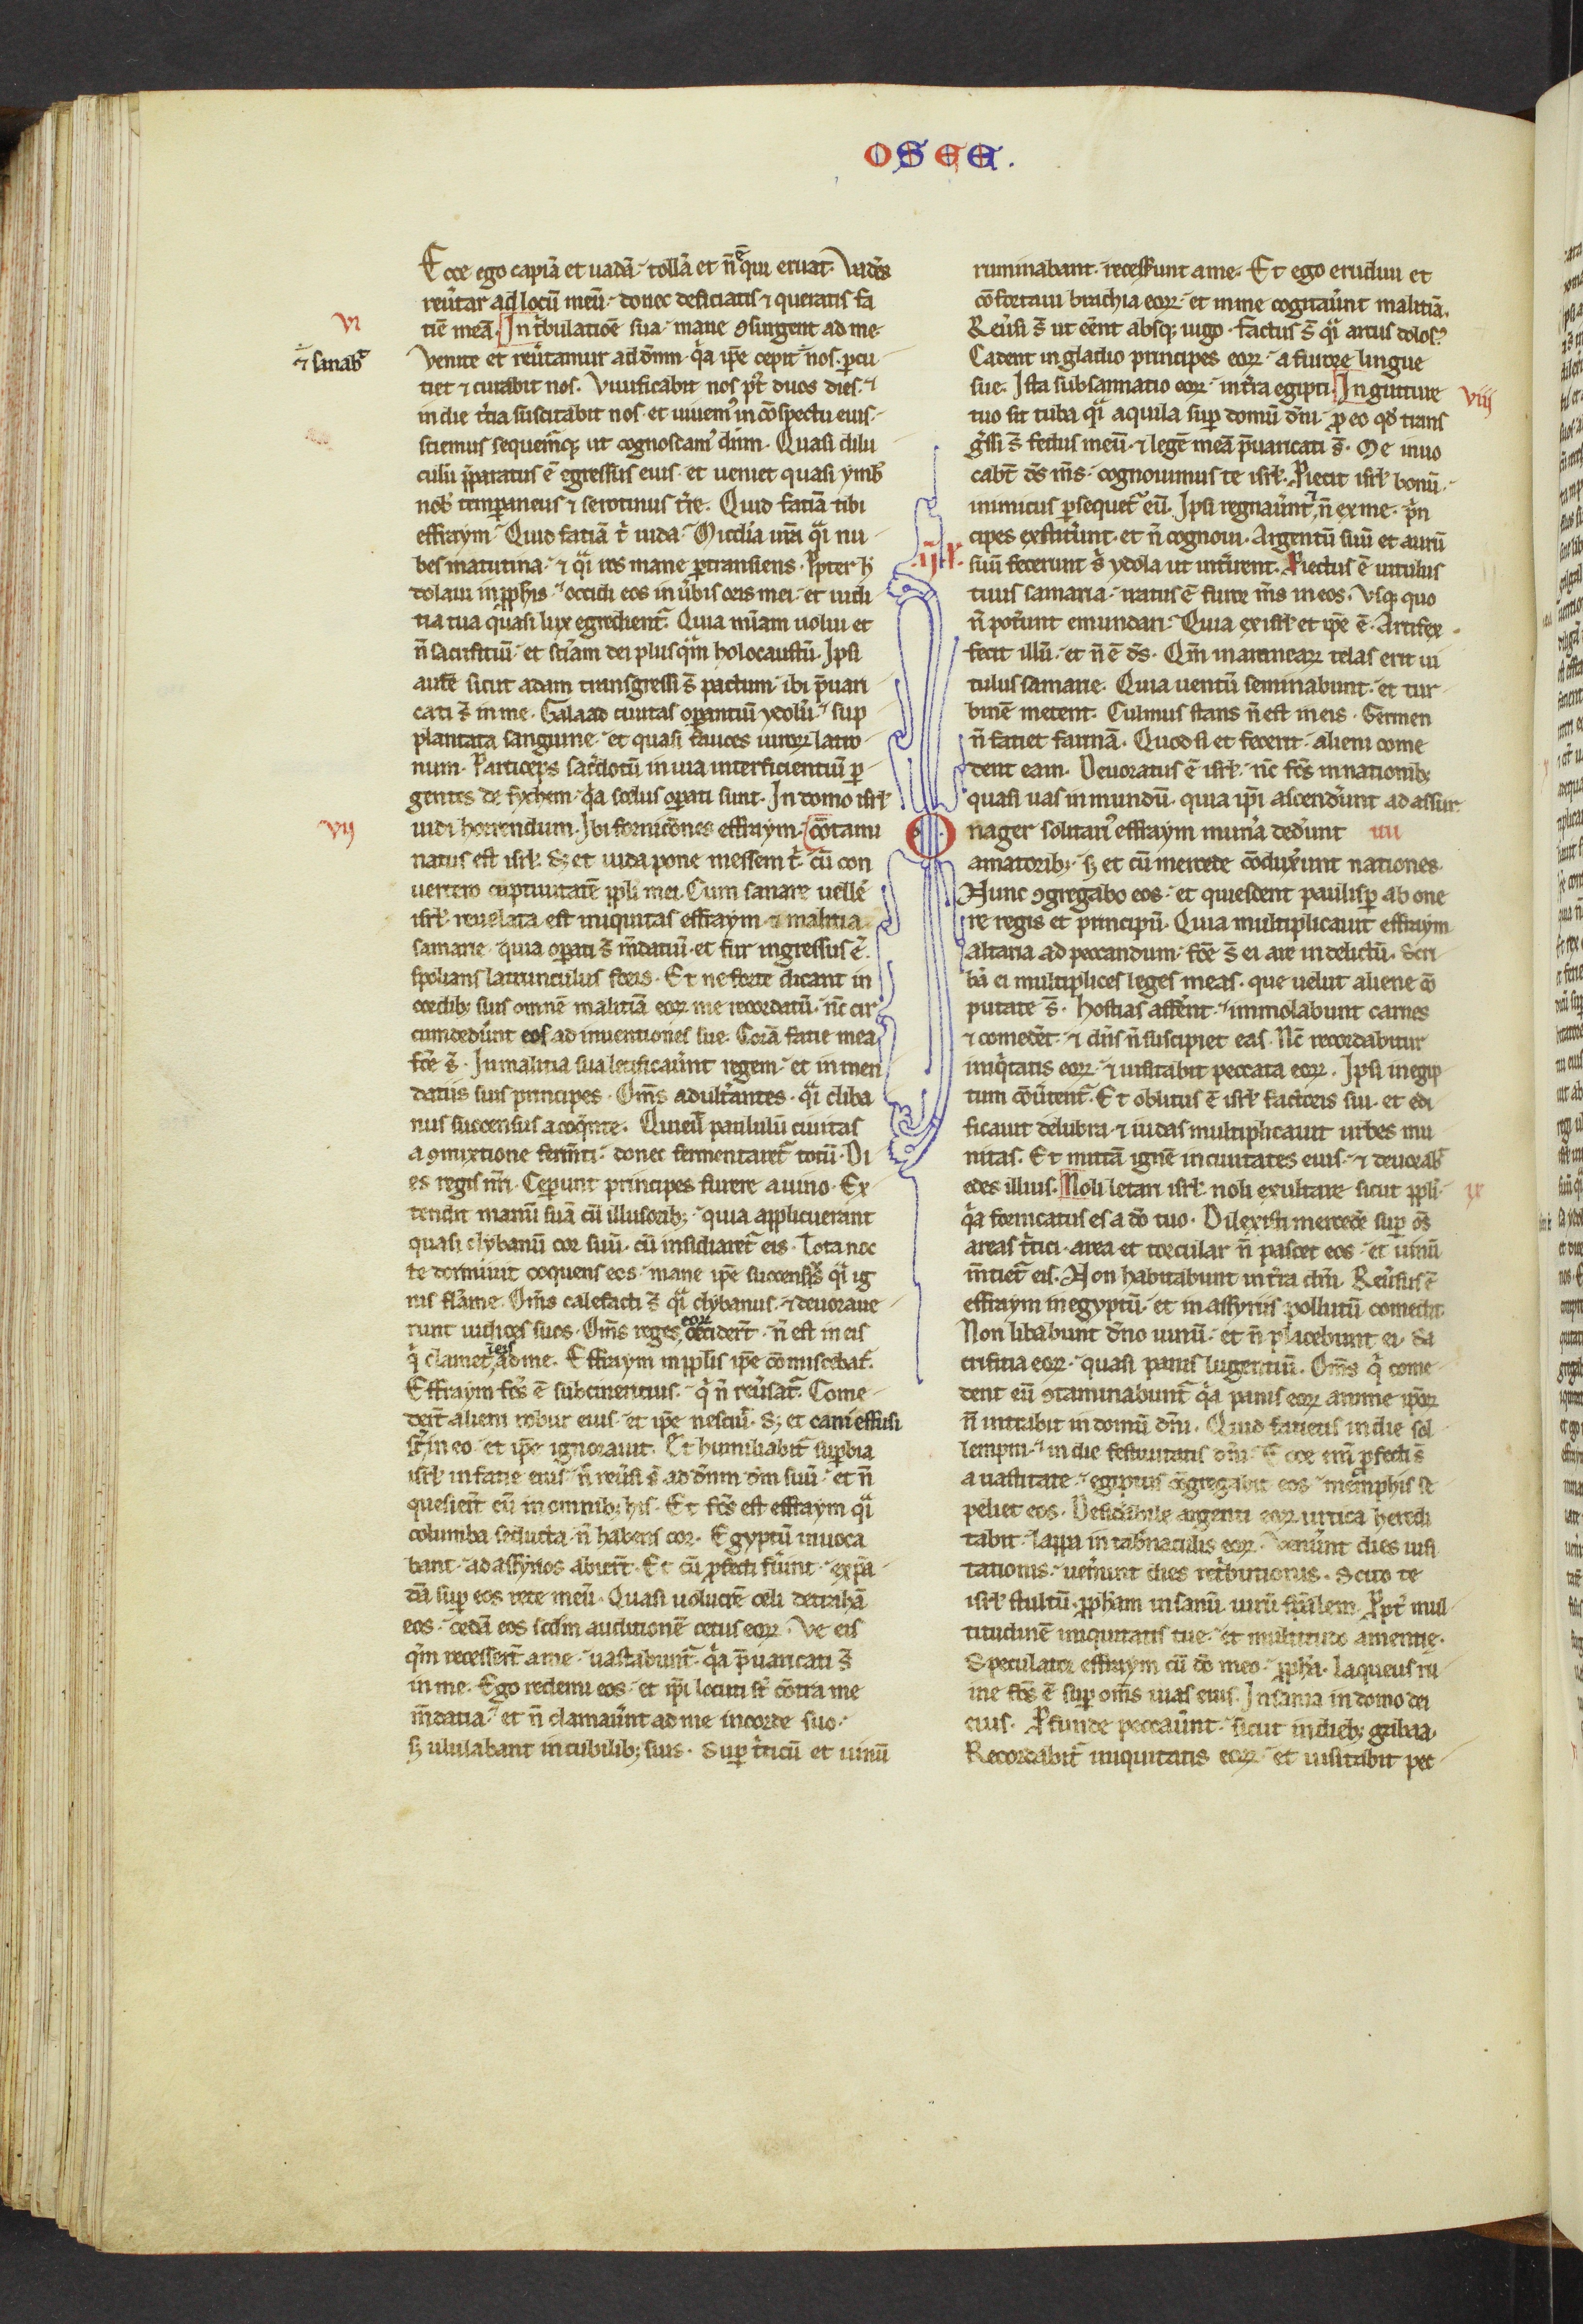 OSEE.
Ecce ego capiā et uadā. tollā et n̄ ē qui eruat. Vadēs
reũtar ad locū meū. donec deficiatis ⁊ queratis fa
VI
tiē meā. In t̃bulatiōe sua. mane ꝯsurgent ad me.
⁊ sanab̃
Venite et reũtamur ad dn̄m. q̃a ip̄e cepit nos. ꝑcu
tiet ⁊ curabit nos. Viuificabit nos pꝰt duos dies. ⁊
in die t̃tia suscitabit nos. et uiuem᷒ in cōspectu eius.
sciemus sequem̃qꝫ ut cognoscam᷒ dn̄m. Quasi dilu
culū p̄paratus ē egressus eius. et ueniet quasi ymb̃
nob̃ temꝑaneus ⁊ serotinus t̃re. Quid fatiā tibi
effraym. Quid fatiā t̃ iuda. Mĩcdia ur̄a q̃i nu
bes matutina. ⁊ q̃i ros mane ꝑtransiens. Ꝓpter h̃
dolaui in ꝓphis. occidi eos in ũbis oris mei. et iudi
tia tua quasi lux egredient̃. Quia mīam uolui et
n̄ sacrifitiū. et sciam̄ dei plusq̃m holocaustū. Ipsi
autē sicut adam transgressi s̄ pactum. ibi p̄uari
cati s̄ in me. Galaad ciuitas oꝑantiū ydolũ. sup
plantata sanguine. et quasi fauces uiroꝝ latro
num. Particeps sac̃dotū in uia interficientiū ꝑ
gentes de sychem. q̃a scelus oꝑati sunt. In domo isr̃l
VII
uidi horrendum. Ibi fornicōnes effraym. cōtami
natus est isr̃l. Sꝫ et iuda pone messem t̃ cū con
uertero captiuitatē ppl̃i mei. Cum sanare uellē
isr̃l reuelata est iniquitas effraym ⁊ malitia
samarie. quia oꝑati s̄ m̄datiū. et fur ingressus ē.
spolians latrunculus foris. Et ne forte dicant in
cordibꝫ suis omnē malitiā eoꝝ me recordatū. nc̄ cir
cumdedũnt eos ad inuentiones sue. Corā fatie mea
fc̄e s̄. In malitia sua letificaũnt regem. et in men
datiis suis principes. Om̄s adult̃antes. q̃i cliba
nus succensus a coq̃nte. Quieuit paululū ciuitas
a ꝯmixtione ferm̄ti. donec fermentaret̃ totū. Di
es regis nr̄i. Ceꝑunt principes furere a uino. Ex
tendit manū suā cū illusoribꝫ. quia applicuerant
quasi clybanū cor suū. cū insidiaret̃ eis. Tota noc
te dormiuit coquens eos. mane ip̄e succensus q̃i ig
nis flãme. Om̄s calefacti s̄ q̃i clybanus. ⁊ deuoraue
runt iudices suos. Om̄s reges eoꝝ cecidert̄. n̄ est in eis
q̃ clamet in eis ad me. Effraym in ppl̃is ip̄e cōmiscebat̃.
Effraym fc̄s ē subcinericius. q̃ n̄ reũsat̃. Come
dert̄ alieni robur eius. et ip̄e nesciuit. Sꝫ et cani effusi
st̃ in eo. et ip̄e ignorauit. Et humiliabit̃ suꝑbia
isr̃l in fatie eius. n̄ reũsi s̄ ad dn̄m dm̄ suū. et n̄
quesiert̄ eū in omnibꝫ his. Et fc̄s est effraym q̃i
columba seducta. n̄ habens cor. Egyptū inuoca
bant. ad assyrios abiert̄. Et cū ꝓfecti fũint. expā
dā suꝑ eos rete meū. Quasi uolucrē celi detrahā
eos. cedā eos scd̄m auditionē cetus eoꝝ. Ve eis
qm̄ recessert̄ a me. uastabunt̃. q̃a p̄uaricati s̄
in me. Ego redemi eos. et ip̄i locuti st̃ cōtra me
m̄datia. et n̄ clamaũnt ad me in corde suo.
sꝫ ululabant in cubilibꝫ suis. Suꝑ t̃ticū et uinū
ruminabant. recesserunt a me. Et ego erudiui et
cōfortaui brachia eoꝝ. et in me cogitaũnt malitiā.
Reũsi s̄ ut eēnt absqꝫ iugo. factus s̄ q̃i arcus dolos᷒.
Cadent in gladio principes eoꝝ. a furore lingue
sue. Ista subsannatio eoꝝ. in t̃ra egipti. In gutture
VIII
tuo sit tuba q̃i aquila suꝑ domū dn̄i. ꝓ eo qd̄ trans
g̃ssi s̄ fedus meū. ⁊ legē meā p̄uaricati s̄. Me inuo
cabt̄ ds̄ ms̄. cognouimus te isr̃l. Ꝓiecit isr̃l bonū.
inimicus ꝑsequet̃ eū. Ipsi regnaũnt. ⁊ n̄ ex me. p̃n
cipes extitẽunt. et n̄ cognoui. Argentū suū et aurū
suū fecerunt s̃ ydola ut int̃irent. Ꝓiectus ē uitulus
tuus samaria. iratus ē furor ms̄ in eos. Vsqꝫ quo
n̄ potẽunt emundari. Quia ex isr̃l et ip̄e ē. Artifex
fecit illū. et n̄ ē ds̄. Qm̄ in aranearꝝ telas erit ui
tulus samarie. Quia uentū seminabunt. et tur
binē metent. Culmus stans n̄ est in eis. Germen
n̄ fatiet farinā. Quod si et fecerit. alieni come
dent eam. Deuoratus ē isr̃l. nc̄ fc̄s in nationibꝫ
quasi uas inmundū. quia ip̄i ascendẽunt ad assur
Onager solitari᷒ effraym munẽa dedẽunt
amatoribꝫ. sꝫ et cū mercede cōduxẽunt nationes.
Nunc ꝯgregabo eos. et quiescent paulisꝑ ab one
re regis et principū. Quia multiplicauit effraym
altaria ad peccandum. fc̄e s̄ ei are in delictū. Scri
bā ei multiplices leges meas. que uelut aliene cō
putate s̄. Hostias affẽnt. immolabunt carnes
⁊ comedēt. ⁊ dn̄s n̄ suscipiet eas. Nc̄ recordabitur
iniq̃tatis eoꝝ. ⁊ uisitabit peccata eoꝝ. Ipsi in egip
tum cōũtent̃. Et oblitus ē isr̃l factoris sui. et edi
ficauit delubra. ⁊ iudas multiplicauit urbes mu
nitas. Et mittā ignē in ciuitates eius. ⁊ deuorab̃
edes illius. Noli letari isr̃l noli exultare sicut ppl̃i.
IX
q̃a fornicatus es a dō tuo. Dilexisti mercedē suꝑ os̄
areas t̃tici. area et torcular n̄ pascet eos. et uinū
m̄tiet̃ eis. Non habitabunt in t̃ra dn̄i. Reũsus ē
effraym in egyptū. et in assyriis pollutū comedit.
Non libabunt dn̄o uinū. et n̄ placebunt ei. Sa
crifitia eoꝝ. quasi panis lugentiū. Om̄s q̃ come
dent eū ꝯtaminabunt̃. q̃a panis eoꝝ anime ip̄oꝝ
n̄ intrabit in domū dn̄i. Quid fatietis in die sol
lempni. in die festiuitatis dn̄i. Ecce eni᷒ ꝓfecti s̄
a uastitate. egiptus cōgregabit eos. memphis se
peliet eos. Desid̃abile argenti eoꝝ urtica heredi
tabit. lappa in tab̃naculis eoꝝ. Venẽunt dies uisi
tationis. uenẽunt dies ret̃butionis. Scito te
isr̃l stultū. ꝓphãm insanū uirū sp̃ualem. Ꝓpt̃ mul
titudinē iniquitatis tue. et multitudo amentie.
Speculator effraym cū dō meo. ꝓpha. laqueus ru
ine fc̄s ē suꝑ om̄s uias eius. Insania in domo dei
eius. Ꝓfunde peccaũnt. sicut in diebꝫ gabaa.
Recordabit̃ iniquitatis eoꝝ. et uisitabit pec